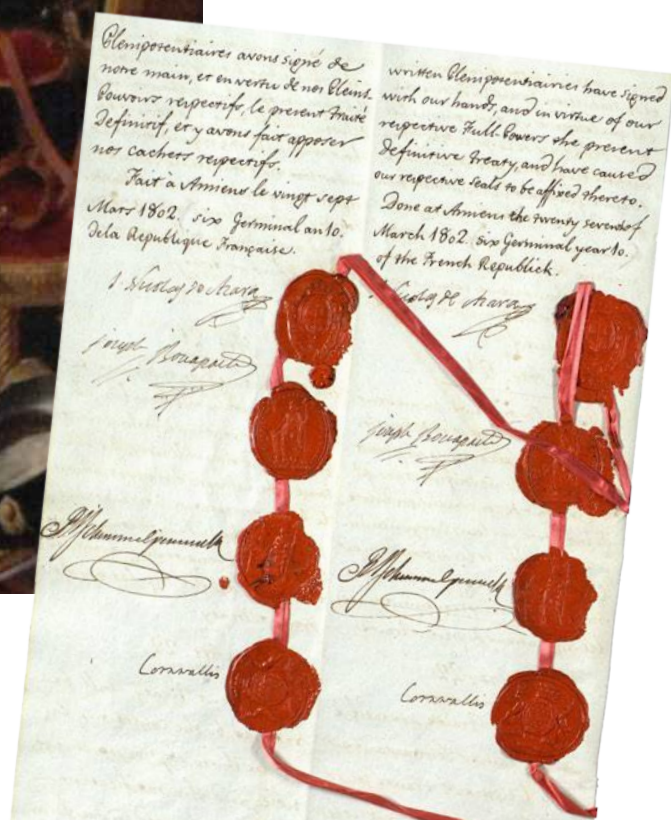 Plenipotentiaires avons signé de
notre main, et en vertu de nos Pleins
Pouvoirs respectifs, le present Traité
Definitif, et y avons fait apposer
nos cachets respectifs.
Fait à Amiens le vingt sept
Mars 1802. six Germinal an 10.
de la Republique Française.
J. Nicolas de Azara
Joseph Bonaparte
RJSchimmelpenninck
Cornwallis
written Plenipotentiairies have signed
with our hands, and in virtue of our
respective Full Powers the present
Definitive Treaty, and have caused
our respective Seals to be affixed thereto.
Done at Amiens the twenty seventh of
March 1802. six Germinal year 10.
of the French Republick.
Nicolas de Azara
Joseph Bonaparte
RJSchimmelpenninck
Cornwallis